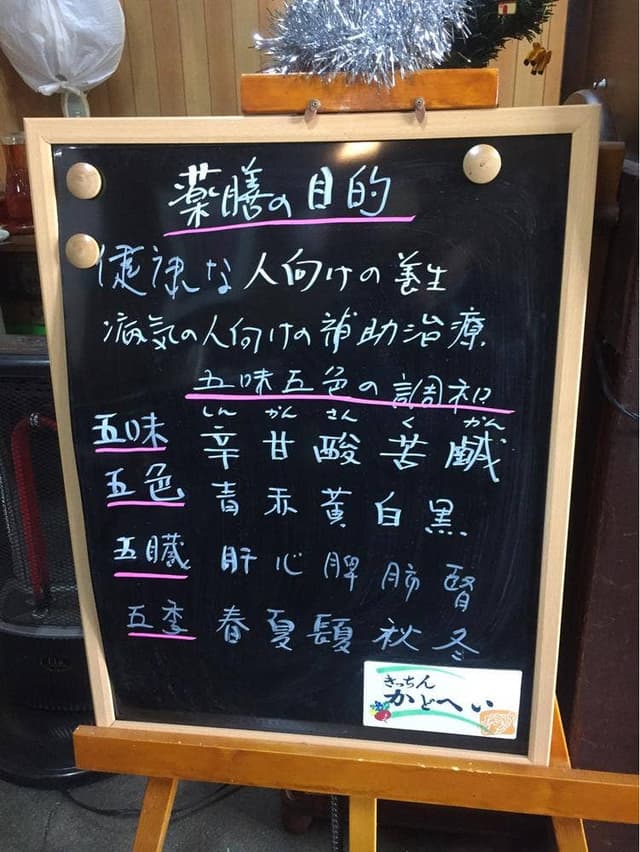 薬膳の目的
健康な人向けの養生
病気の人向けの補助治療
五味五色の調和
しん かん さん く かん
五味 辛 甘 酸 苦 鹹
五色 青 赤 黄 白 黒
五臓 肝 心 脾 肺 腎
五季 春 夏 秋 冬
きっちん
かどへい